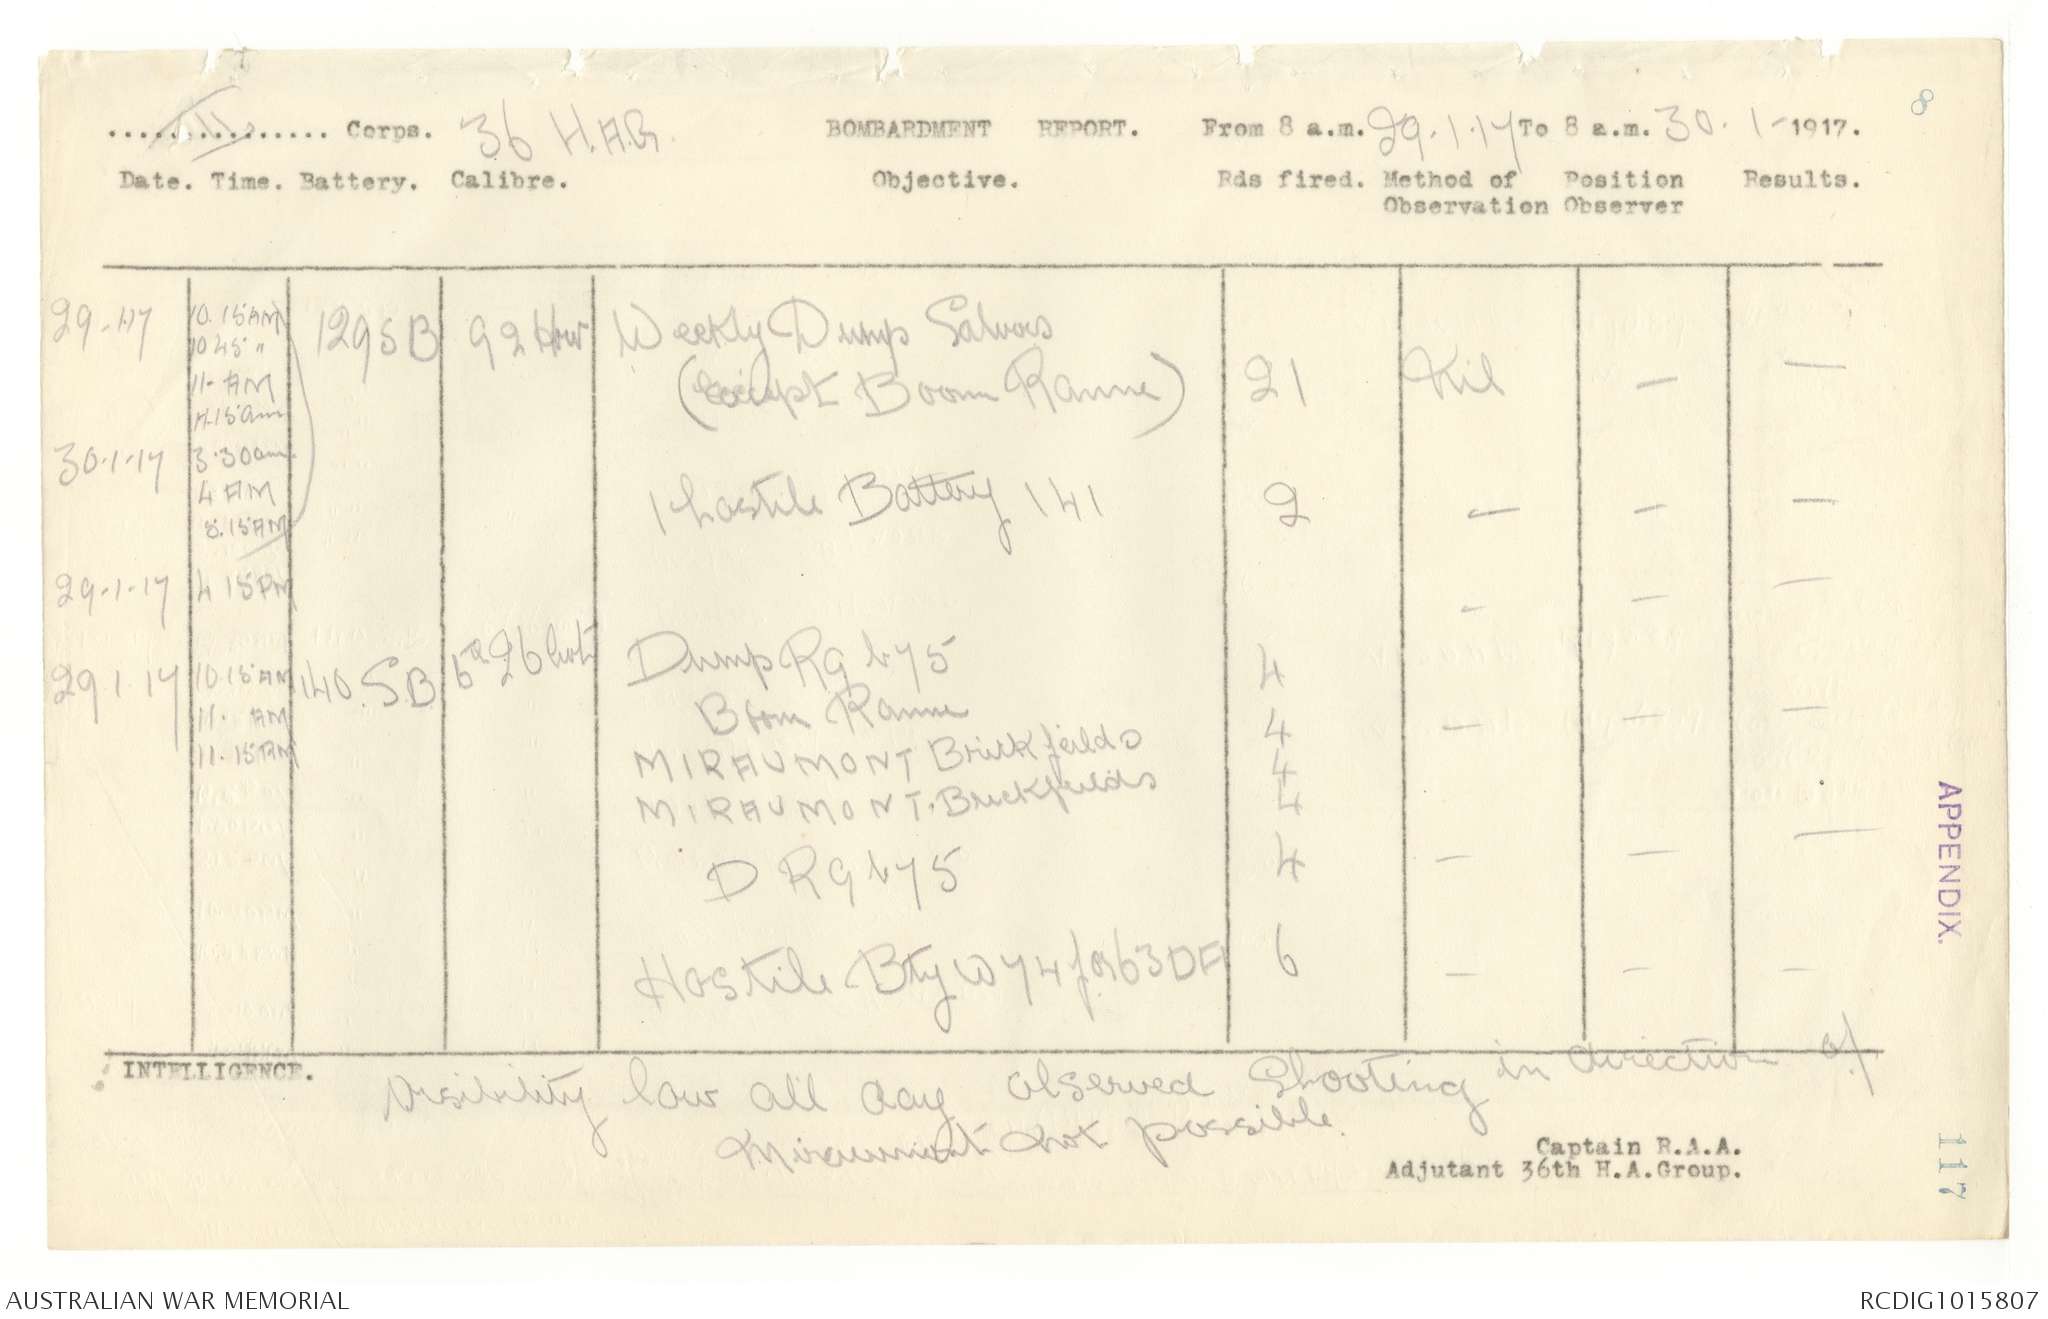 8
III Corps. 36 H.A.G. BOMBARDMENT REPORT. From 8 a.m. 29.1.17 To 8 a.m. 30.1-1917.
Date. Time. Battery. Calibre. Objective. Rds fired. Method of Position Results.
Observation Observer
29.1.17 10.15AM 129SB 92 How Weekly Dump Salvos
10 45 "
11. AM (except Boom Ravine) 21 Nil — —
11.15am
30.1.17 3.30am
4 AM 1 hostile Battery 141 2 — — —
8.15AM
29.1.17 4 15PM — — —
29.1.17 10.15AM 140.S.B. 26 Dump R9 b 75 4
11. AM Boom Ravine 4 — — —
11.15AM MIRAUMONT Brickfeilds 4
MIRAUMONT. Brickfeilds 4
D R9 b 75 4 — — —
Hostile Bty 6 — — —
INTELLIGENCE. Visibility low all day observed Shooting in direction of
Miraumont not possible.
Captain R.A.A.
Adjutant 36th H.A.Group.
APPENDIX.
117
AUSTRALIAN WAR MEMORIAL RCDIG1015807